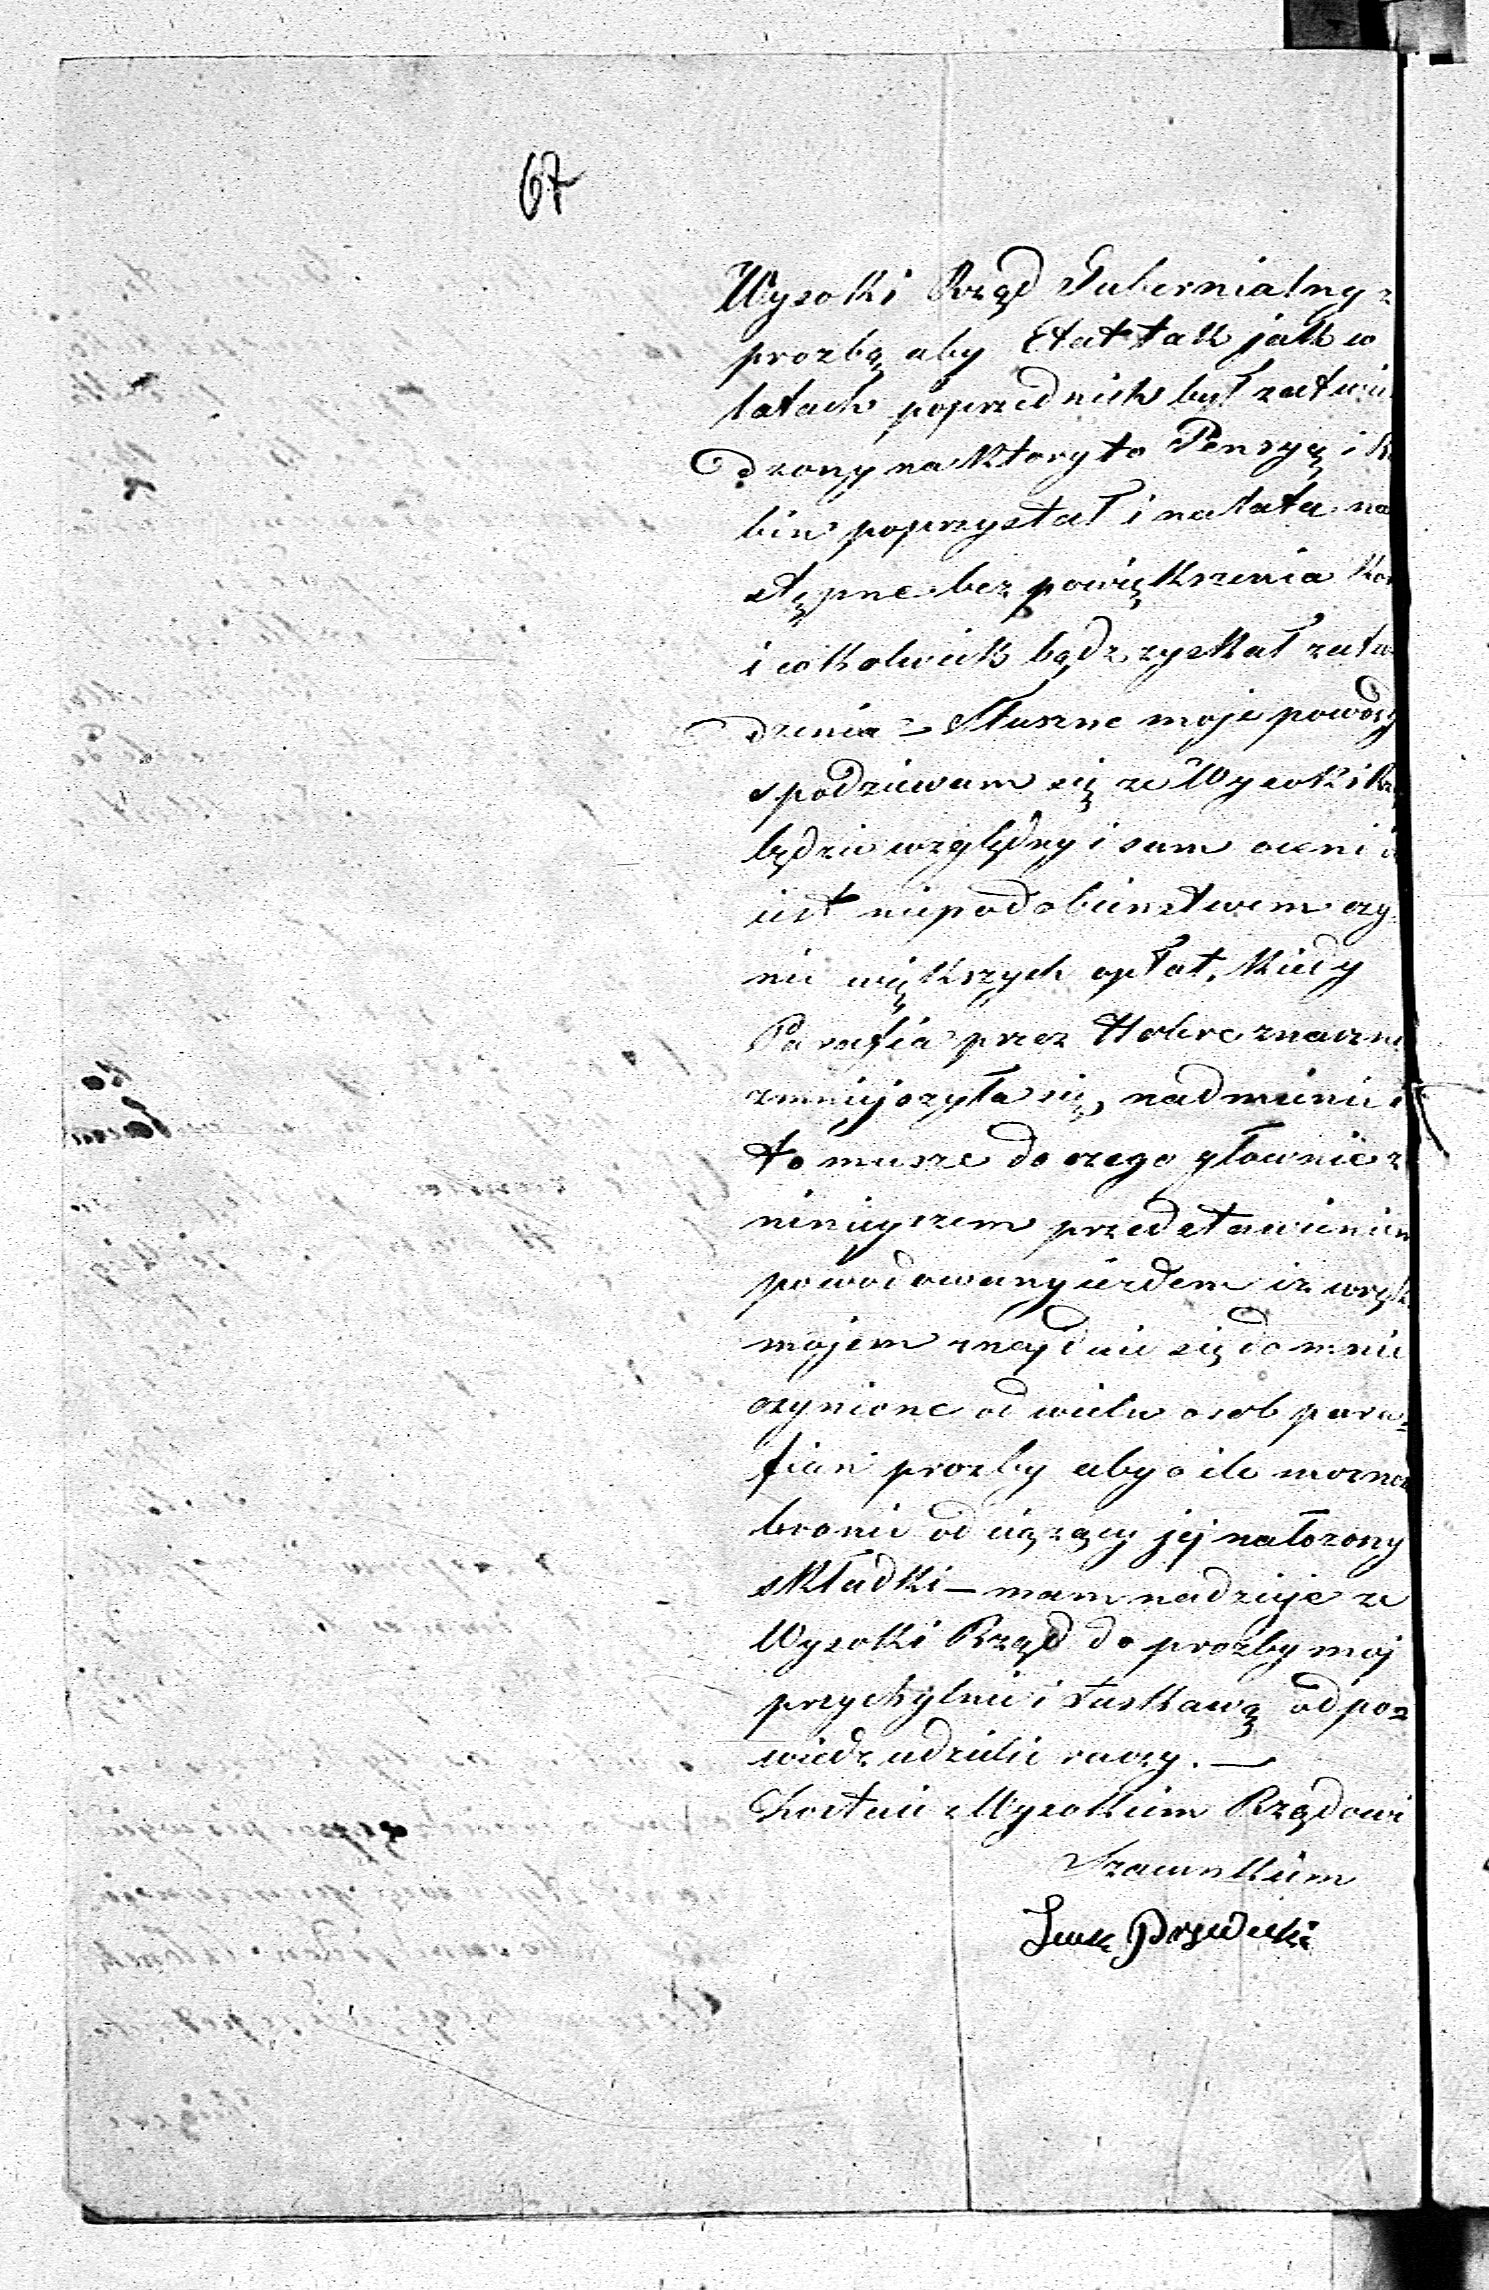 67
Wysoki Rząd Gubernialny z
prozbą aby Etat tak jak w
latach poprzednich był zatwie
dzony na ktory to Pensyą i Ra
bin poprzystał i na lata na
stępne bez powiększenia
i cokolwiek bądz zyskał zatw
dzenia – Słuszne moje powody
spodziewam się ze Wysoki Rzą
będzie względny i sam oceni i
iest niepodobienstwem czy
nic większych opłat, kiedy
Parafia przez Holerę znaczn
zmniejszyła się, nadmienic i
to musze do czego głownie z
niniejszem przedstawieniem
powodowany iezdem iz w ręk
mojem znajduie się do mnie
czynione od wielu osob para-
fian prozby aby o ile mozna
bronic od ciązący jej nałozony
składki – mam nadzieje ze
Wysoki Rząd do prozby moj
przychylnie i łaskawą odpo-
wiedz udzielic raczy. –
Zostaie z Wysokiem Rządowi
Szacunkiem